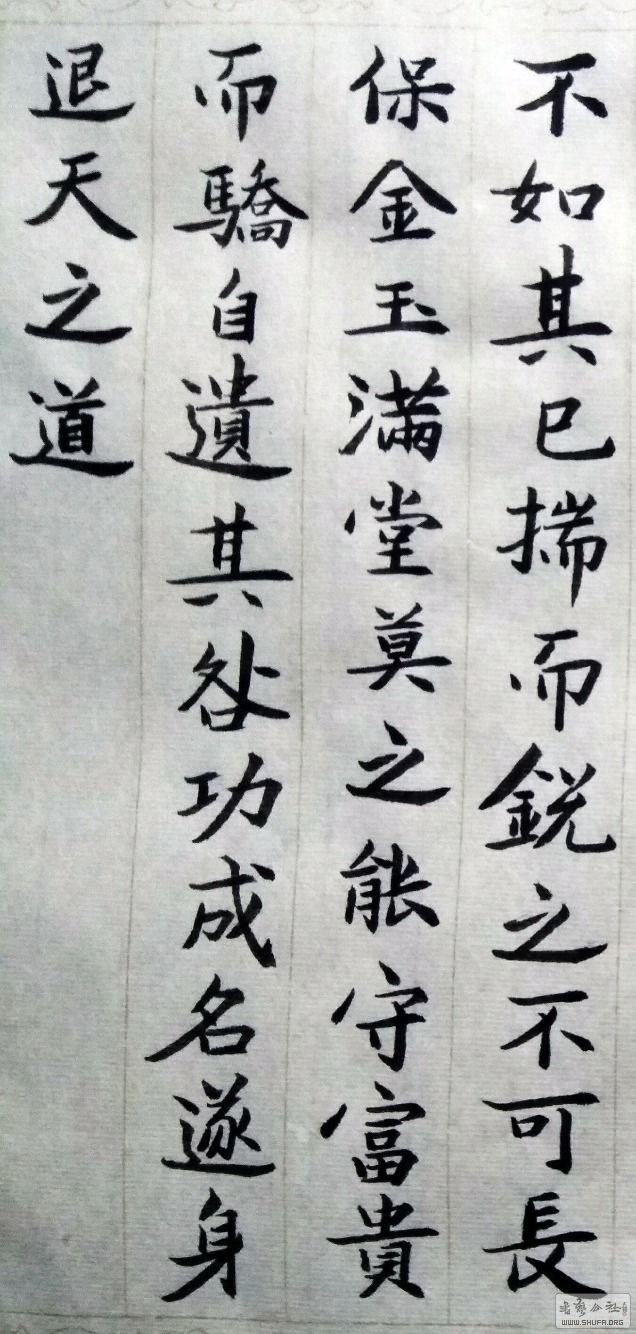 不如其已揣而銳之不可長
保金玉滿堂莫之能守富貴
而驕自遺其咎功成名遂身
退天之道
WWW.SHUFA.ORG